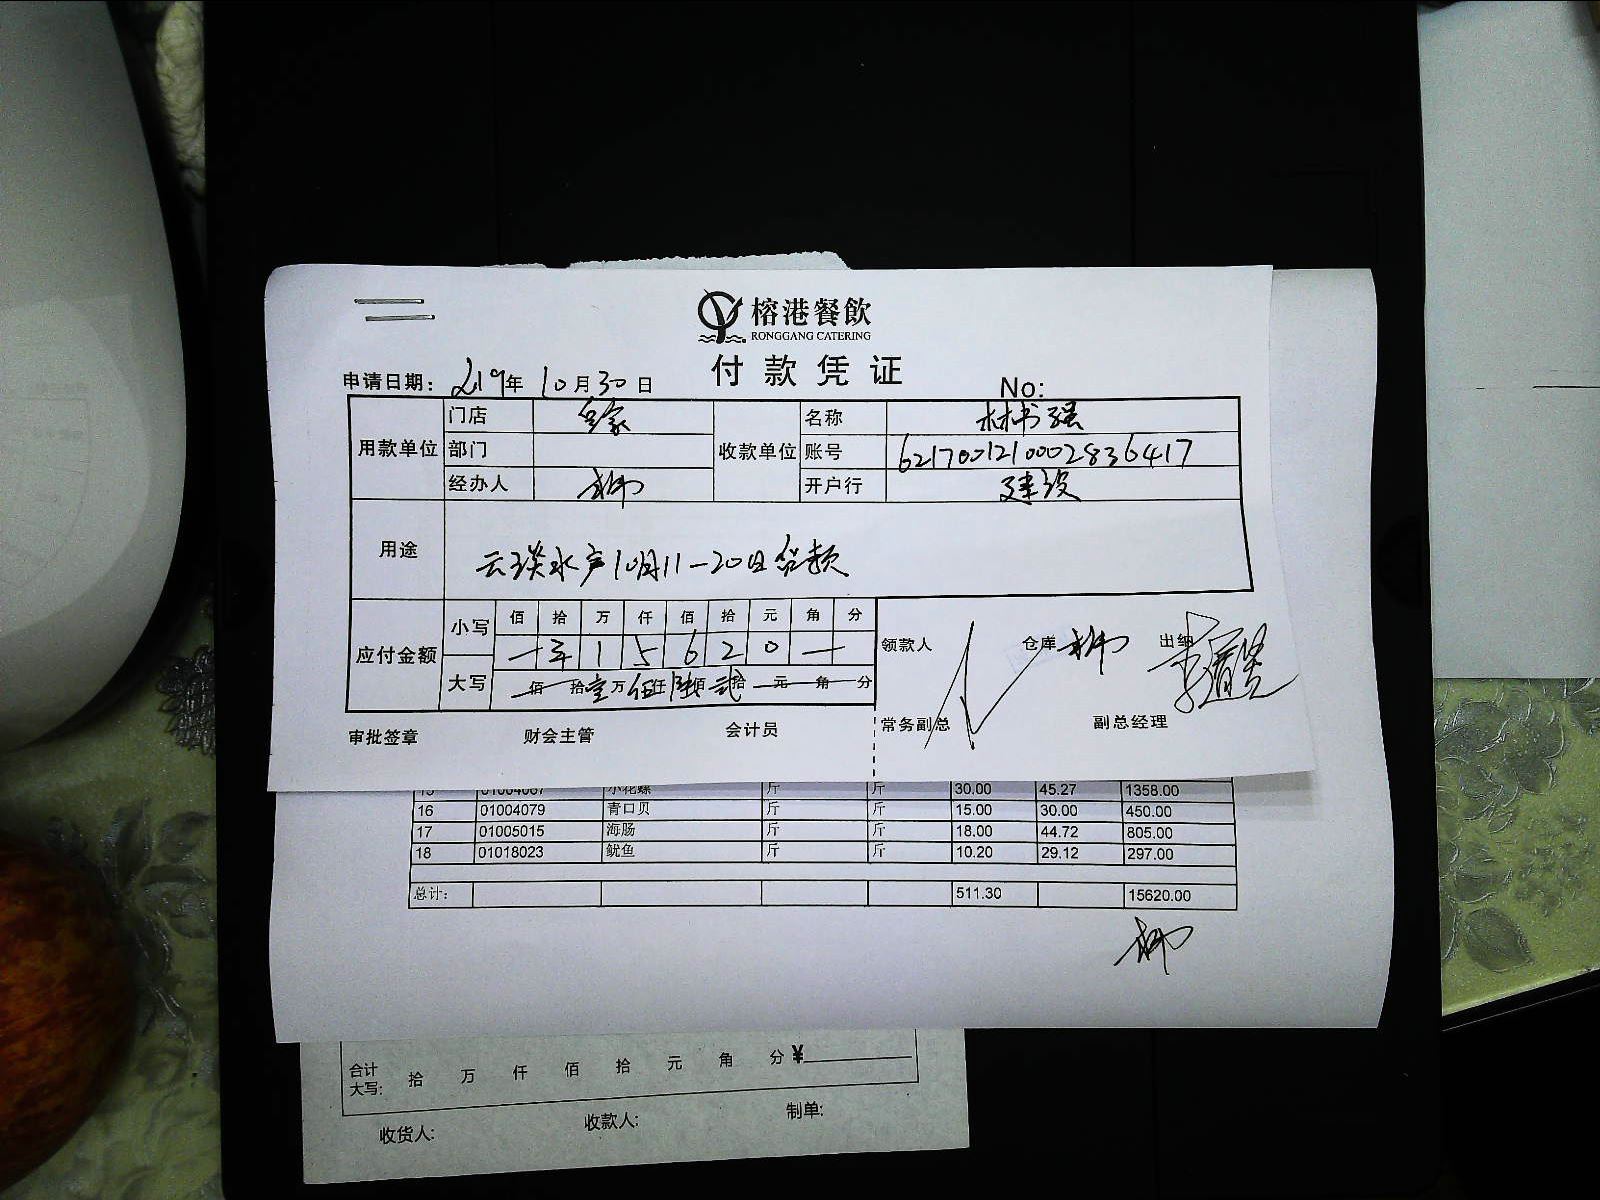 榕港餐飲
RONGGANG CATERING
付款凭证
申请日期: 2019年 10月 30日 No:
用款单位 门店 收款单位 名称 林书强
部门 账号 6217001210002836417
经办人 开户行 建设
用途 云琰水产10月11-20日货款
应付金额 小写 佰 拾 万 仟 佰 拾 元 角 分
一 1 5 6 2 0 一
大写 佰 拾壹万伍仟陆佰贰拾 元 角 分
领款人 仓库 出纳
审批签章 财会主管 会计员 常务副总 副总经理
15 01004067 小花螺 斤 斤 30.00 45.27 1358.00
16 01004079 青口贝 斤 斤 15.00 30.00 450.00
17 01005015 海肠 斤 斤 18.00 44.72 805.00
18 01018023 鱿鱼 斤 斤 10.20 29.12 297.00
总计: 511.30 15620.00
合计
大写: 拾 万 仟 佰 拾 元 角 分 ¥
收货人: 收款人: 制单: